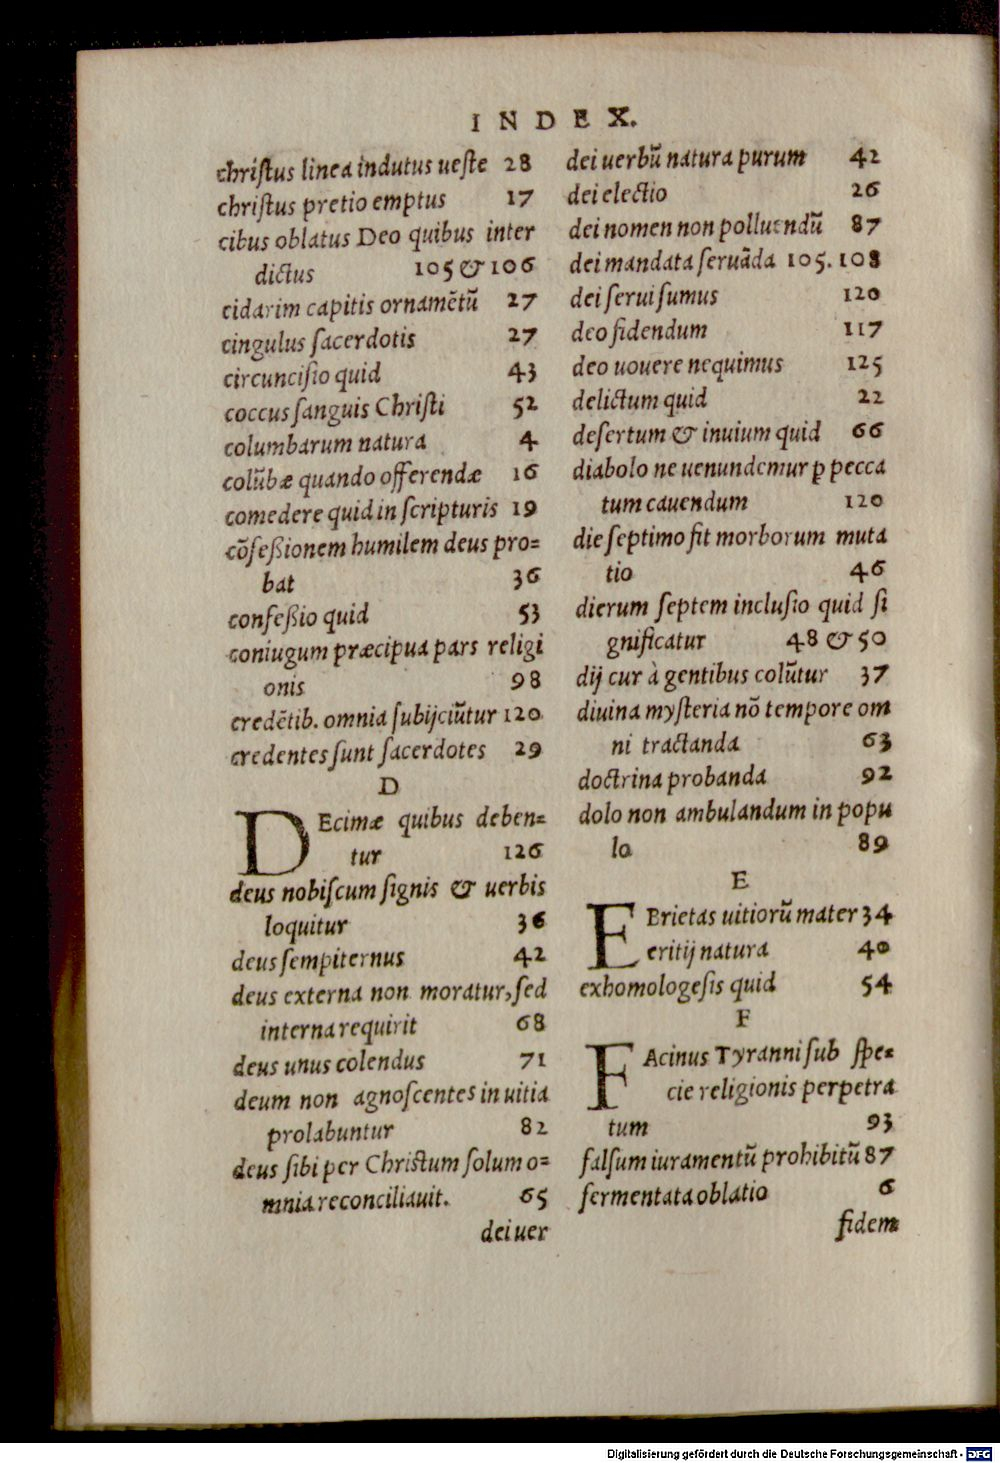 INDEX.
chriſtus linea indutus ueſte 28
chriſtus pretio emptus 17
cibus oblatus Deo quibus inter
dictus 105 & 106
cidarim capitis ornamẽtũ 27
cingulus ſacerdotis 27
circunciſio quid 43
coccus ſanguis Chriſti 52
columbarum natura 4
colũbæ quando offerendæ 16
comedere quid in ſcripturis 19
cõfeßionem humilem deus pro=
bat 36
confeßio quid 53
coniugum præcipua pars religi
onis 98
credẽtib. omnia ſubijciũtur 120
credentes ſunt ſacerdotes 29
D
DEcimæ quibus deben=
tur 126
deus nobiſcum ſignis & uerbis
loquitur 36
deus ſempiternus 42
deus externa non moratur, ſed
interna requirit 68
deus unus colendus 71
deum non agnoſcentes in uitia
prolabuntur 82
deus ſibi per Chriſtum ſolum o=
mnia reconciliauit. 65
dei uer
dei uerbũ natura purum 42
dei electio 26
dei nomen non polluendũ 87
dei mandata ſeruãda 105. 108
dei ſerui ſumus 120
deo fidendum 117
deo uouere nequimus 125
delictum quid 22
deſertum & inuium quid 66
diabolo ne uenundemur ꝑ pecca
tum cauendum 120
die ſeptimo fit morborum muta
tio 46
dierum ſeptem incluſio quid ſi
gnificatur 48 & 50
dij cur à gentibus colũtur 37
diuina myſteria nõ tempore om
ni tractanda 63
doctrina probanda 92
dolo non ambulandum in popu
lo 89
E
EBrietas uitiorũ mater 34
eritij natura 40
exhomologeſis quid 54
F
FAcinus Tyranni ſub ſpe=
cie religionis perpetra
tum 93
falſum iuramentũ prohibitũ 87
fermentata oblatio 6
fidem
Digitalisierung gefördert durch die Deutsche Forschungsgemeinschaft - DFG